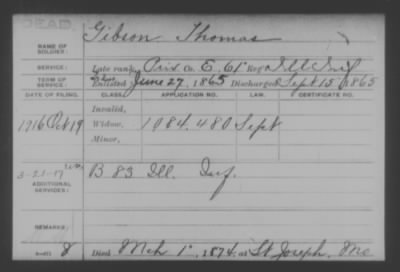 DEAD.
Gibson Thomas
NAME OF SOLDIER:
SERVICE: Late rank, Priv Co. E. 61 Reg't Ill Inf
TERM OF SERVICE: Enlisted June 27, 1865 Discharged Sept 15, 1865
DATE OF FILING. CLASS. APPLICATION NO. LAW. CERTIFICATE NO.
Invalid,
1916 Oct 19 Widow, 1084.480 Sept
Minor,
3-23-17
ADDITIONAL SERVICES: B 83 Ill. Inf.
REMARKS:
8 Died Mch 1, 1874, at St Joseph, Mo